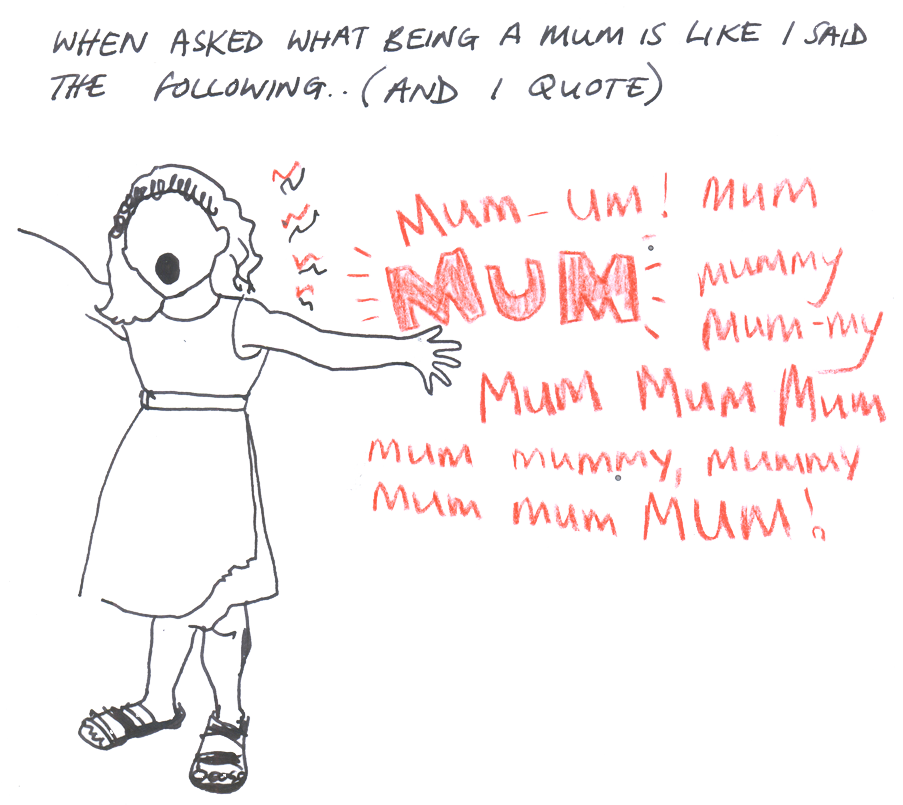 WHEN ASKED WHAT BEING A MUM IS LIKE I SAID
THE FOLLOWING.. (AND I QUOTE)
Mum-um! mum
MUM
mummy
Mum-my
Mum Mum Mum
mum mummy, mummy
mum mum MUM!